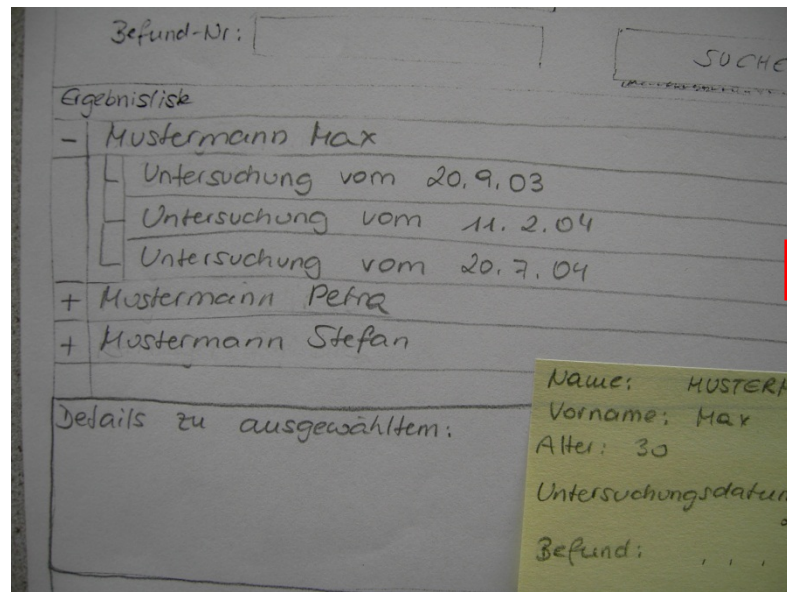 Befund-Nr:
SUCHE
Ergebnisliste
- Mustermann Max
Untersuchung vom 20.9.03
Untersuchung vom 11.2.04
Untersuchung vom 20.7.04
+ Mustermann Petra
+ Mustermann Stefan
Details zu ausgewähltem:
Name: MUSTERM
Vorname: Max
Alter: 30
Untersuchungsdatum
Befund: . . .